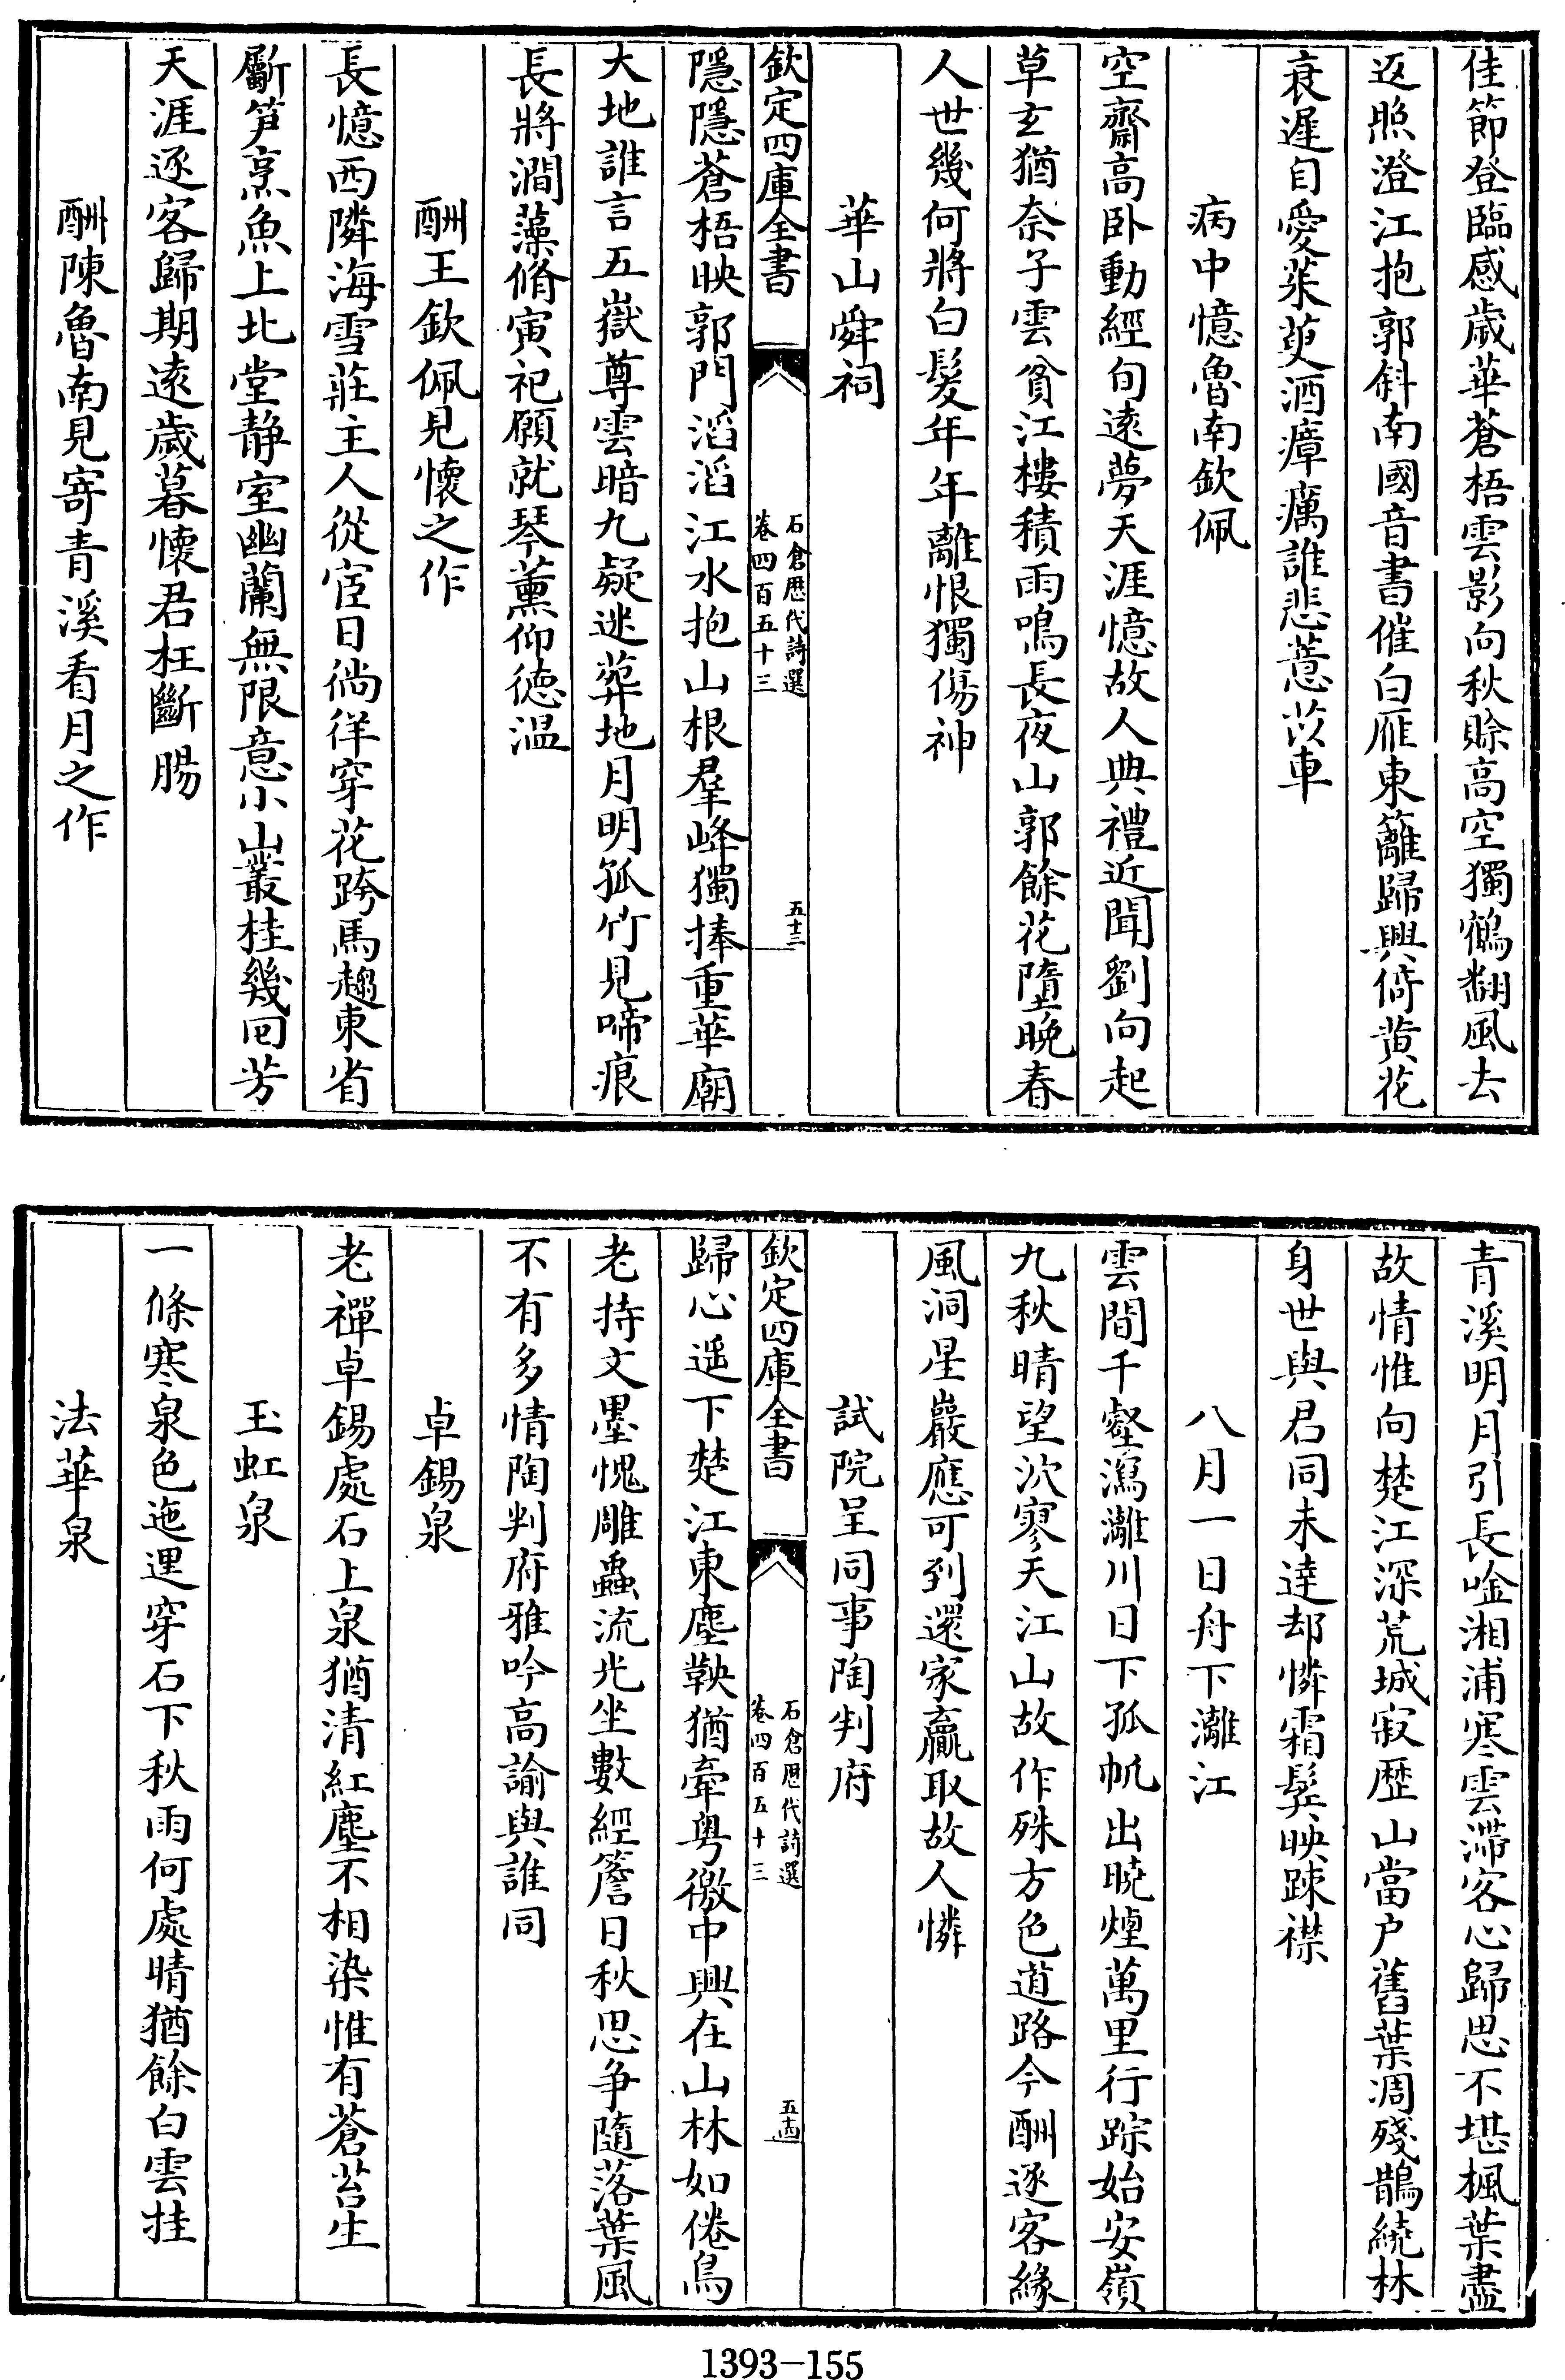 佳節登臨感歲華蒼梧雲影向秋賒高空獨鶴翻風去
返照澄江抱郭斜南國音書催白雁東籬歸興倚黄花
衰遲自愛茱萸酒瘴癘誰悲薏苡車
病中憶魯南欽佩
空齋高卧動經旬遠夢天涯憶故人典禮近聞劉向起
草玄猶奈子雲貧江樓積雨鳴長夜山郭餘花墮晚春
人世幾何將白髮年年離恨獨傷神
華山舜祠
欽定四庫全書
石倉歴代詩選
卷四百五十三
五十三
隱隱蒼梧映郭門滔滔江水抱山根羣峰獨捧重華廟
大地誰言五嶽尊雲暗九疑迷葬地月明孤竹見啼痕
長將澗藻脩寅祀願就琴薰仰德温
酬王欽佩見懷之作
長憶西隣海雪莊主人從宦日徜徉穿花跨馬趨東省
斸笋烹魚上北堂静室幽蘭無限意小山叢桂幾回芳
天涯逐客歸期遠歲暮懷君枉斷腸
酬陳魯南見寄青溪看月之作
青溪明月引長唫湘浦寒雲滯客心歸思不堪楓葉盡
故情惟向楚江深荒城寂歴山當户舊葉凋殘鵲繞林
身世與君同未達却憐霜髩映踈襟
八月一日舟下灕江
雲間千壑瀉灕川日下孤帆出曉煙萬里行踪始安嶺
九秋晴望泬寥天江山故作殊方色道路今酬逐客緣
風洞星巖應可列還家贏取故人憐
試院呈同事陶判府
欽定四庫全書
石倉歴代詩選
卷四百五十三
五十四
歸心遥下楚江東塵鞅猶牽粤徼中興在山林如倦鳥
老持文墨愧雕蟲流光坐數經簷日秋思争隨落葉風
不有多情陶判府雅吟高諭與誰同
卓錫泉
老禪卓錫處石上泉猶清紅塵不相染惟有蒼苔生
玉虹泉
一條寒泉色迤𨓦穿石下秋雨何處晴猶餘白雲挂
法華泉
1393-155